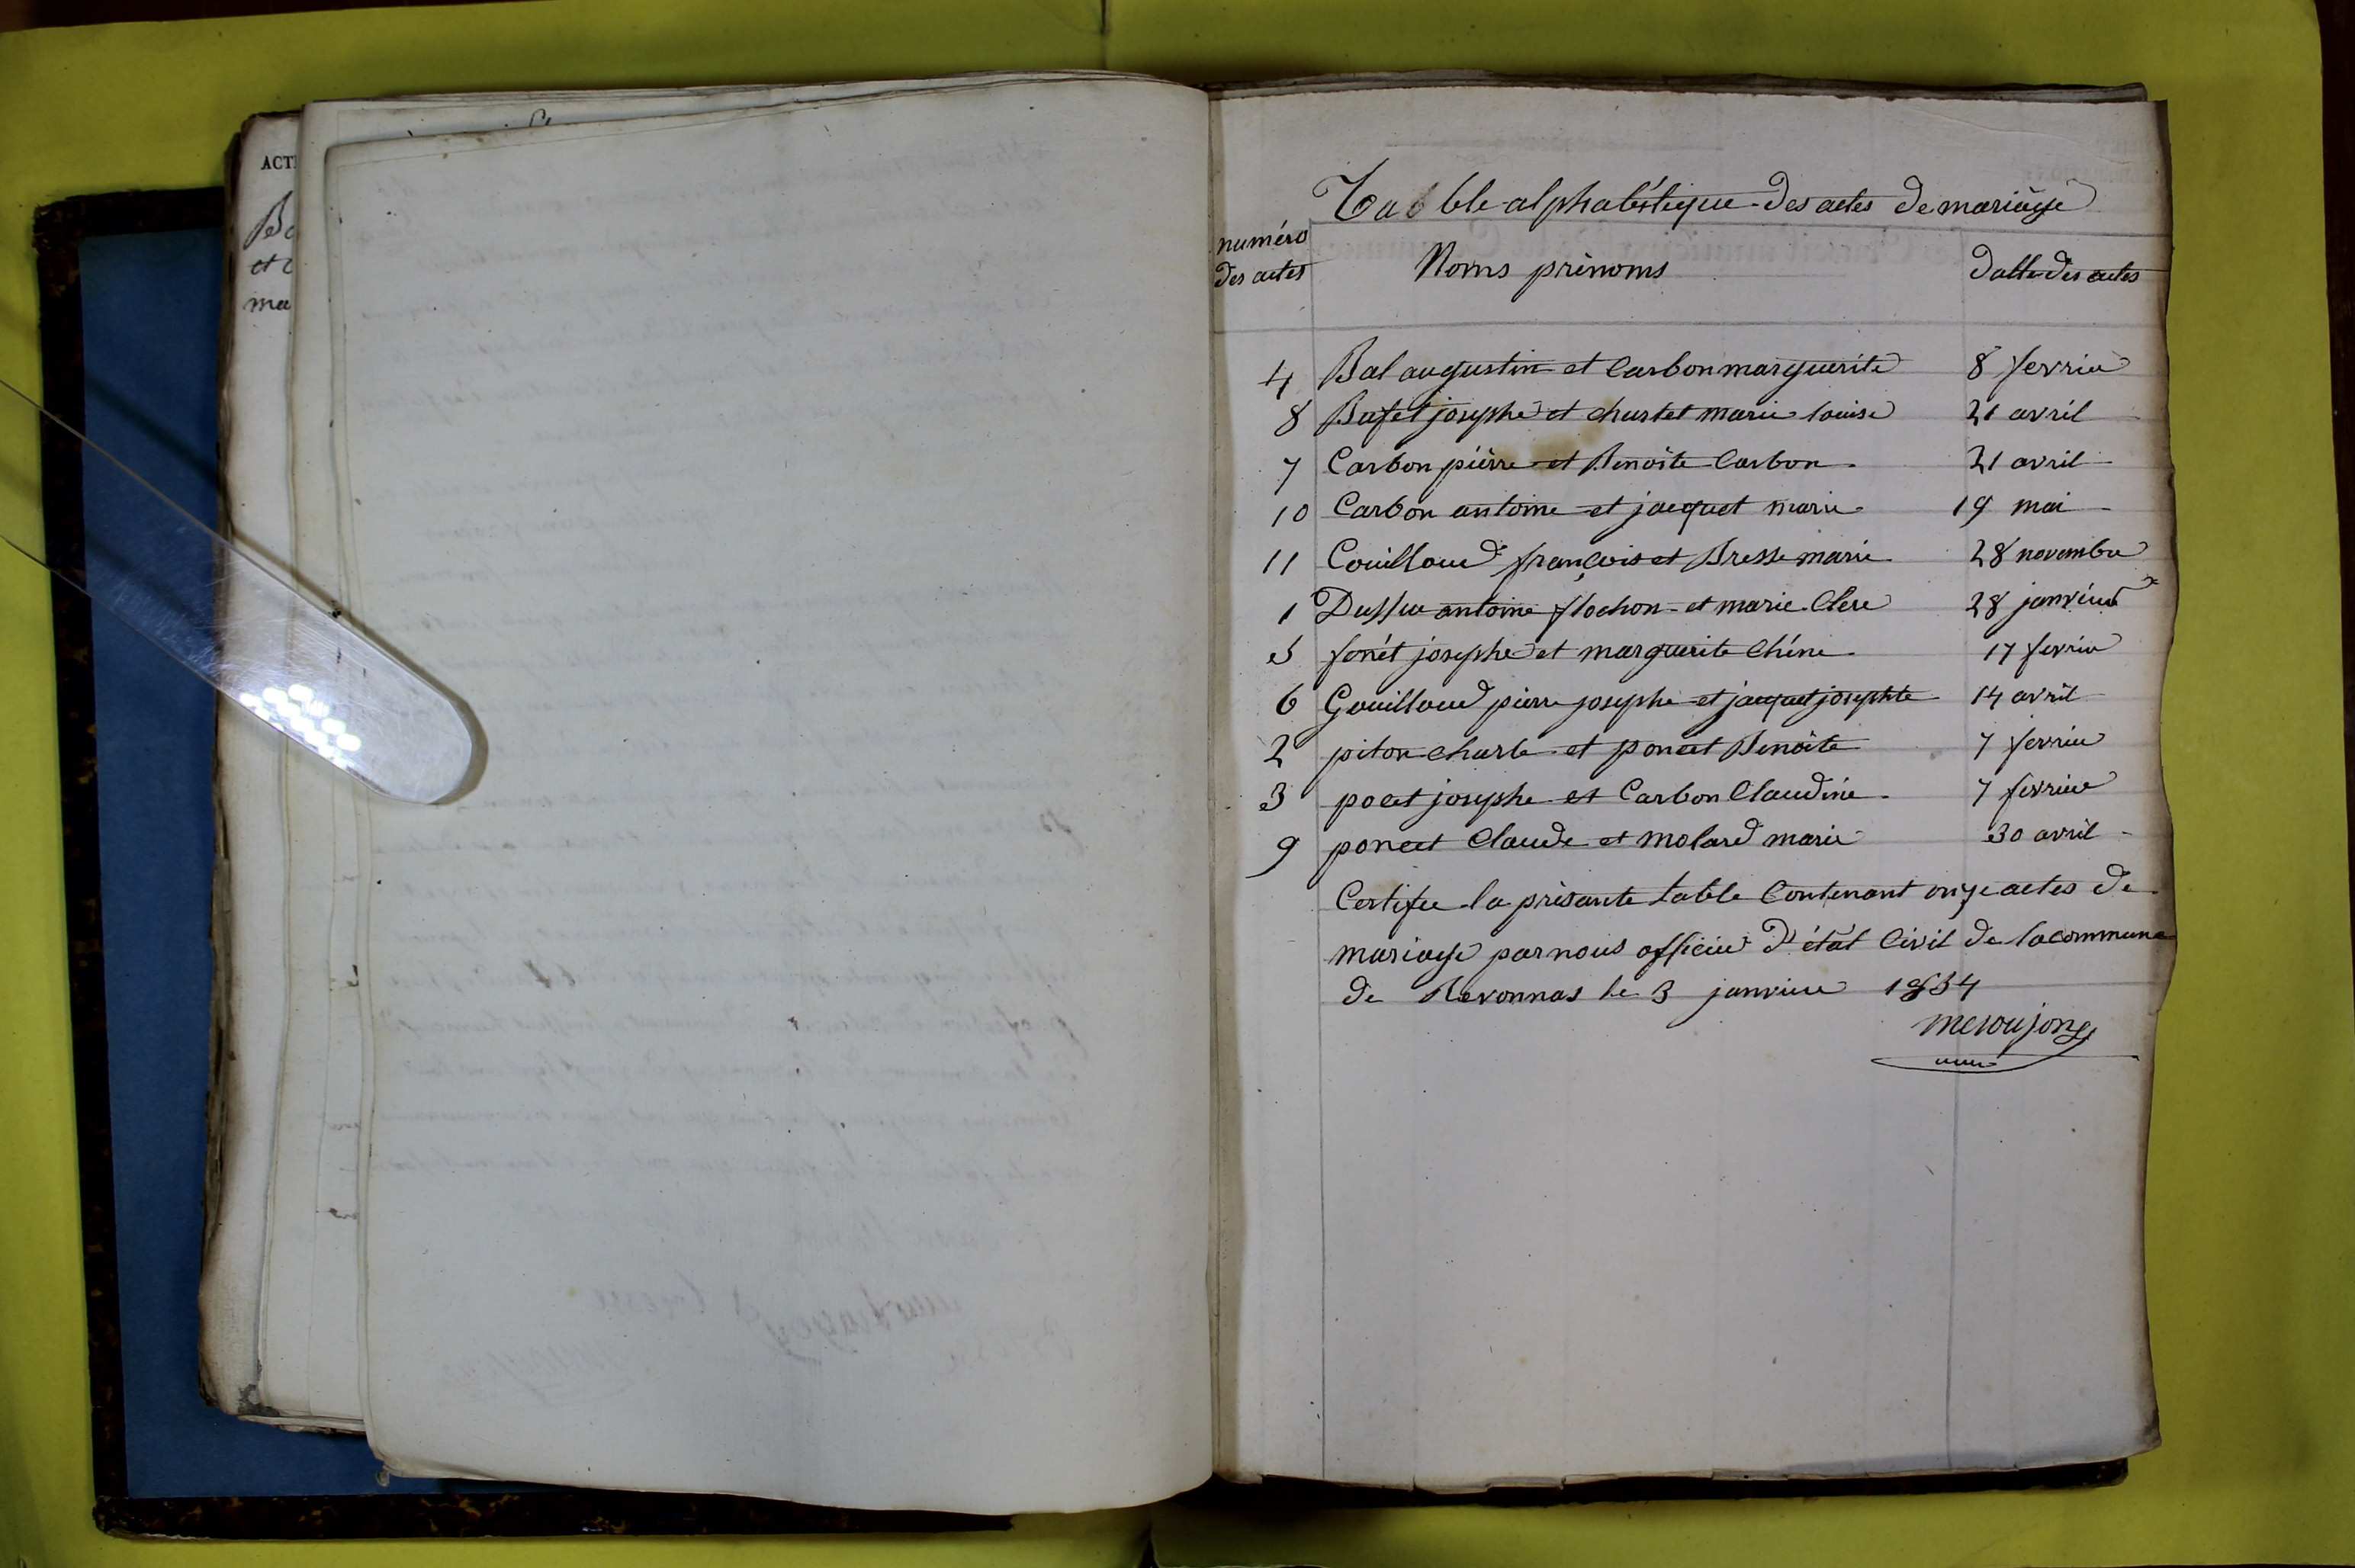 ACT
et
ma
Table alphabétique des actes de mariage
numéro
des actes
Noms prénoms
datte des actes
4 Bal augustin et Carbon marguerite 8 fevrier
8 Bufet josephe et chustet marie louise 21 avril
7 Carbon pièrre et Benoite Carbon 21 avril
10 Carbon antoine et jacquet marie 19 mai
11 Couilloud françois et Bresse marie 28 novembre
1 antoine flochon et marie Clere 28 janvier
5 forêt josephe et marguerite Chéne 17 fevrier
6 Gouilloud pierre josephe et jacquet josephte 14 avril
2 piton charle et poncet Benoite 7 fevrier
3 pocet josephe et Carbon Claudine 7 fevrier
9 poncet Claude et molard marie 30 avril
Certifie la présante table Contenant onze actes de
mariage par nous officier d'état Civil de la commune
de Revonnas le 3 janvier 1834